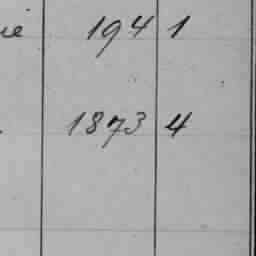 194 1
1873 4